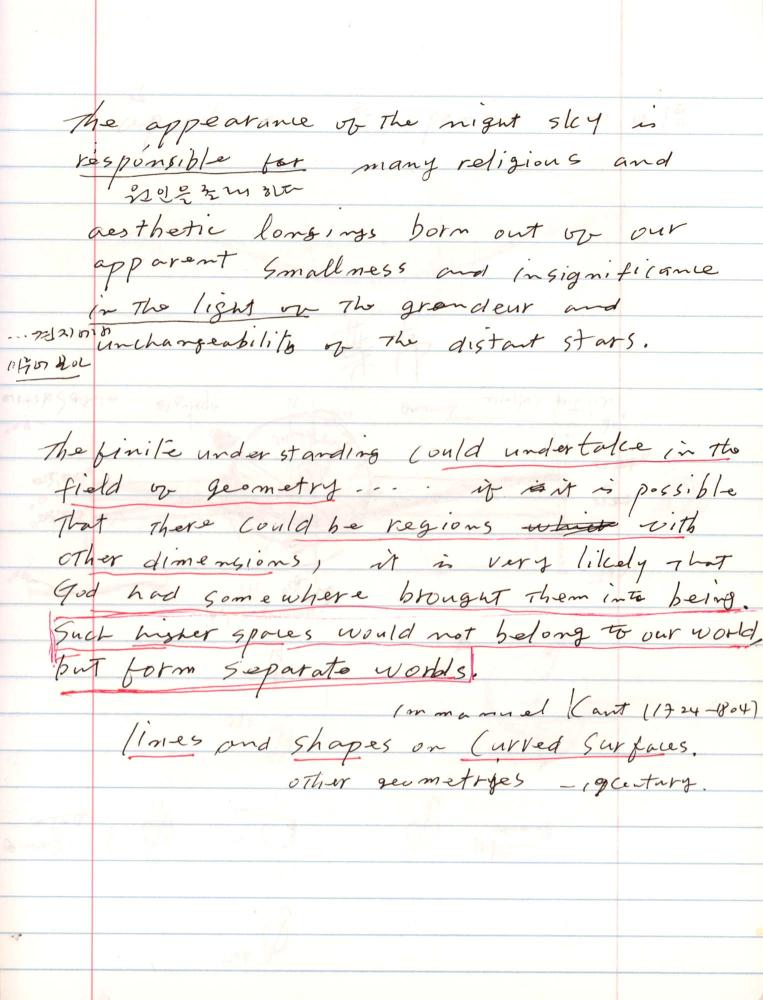 The appearance of The night sky is
responsible for many religious and
원인을 초래하다
aesthetic longings born out of our
apparent smallness and insignificance
in The light of The grandeur and
unchangeability of The distant stars.
The finite understanding could undertake in the
field of geometry.... if it is possible
That There could be regions which with
other dimensions, it is very likely That
God had somewhere brought Them into being.
Such higher spaces would not belong to our world,
but form separate worlds.
Immanuel Kant (1724-1804)
lines and shapes on Curved Surfaces.
other geometries - 19century.